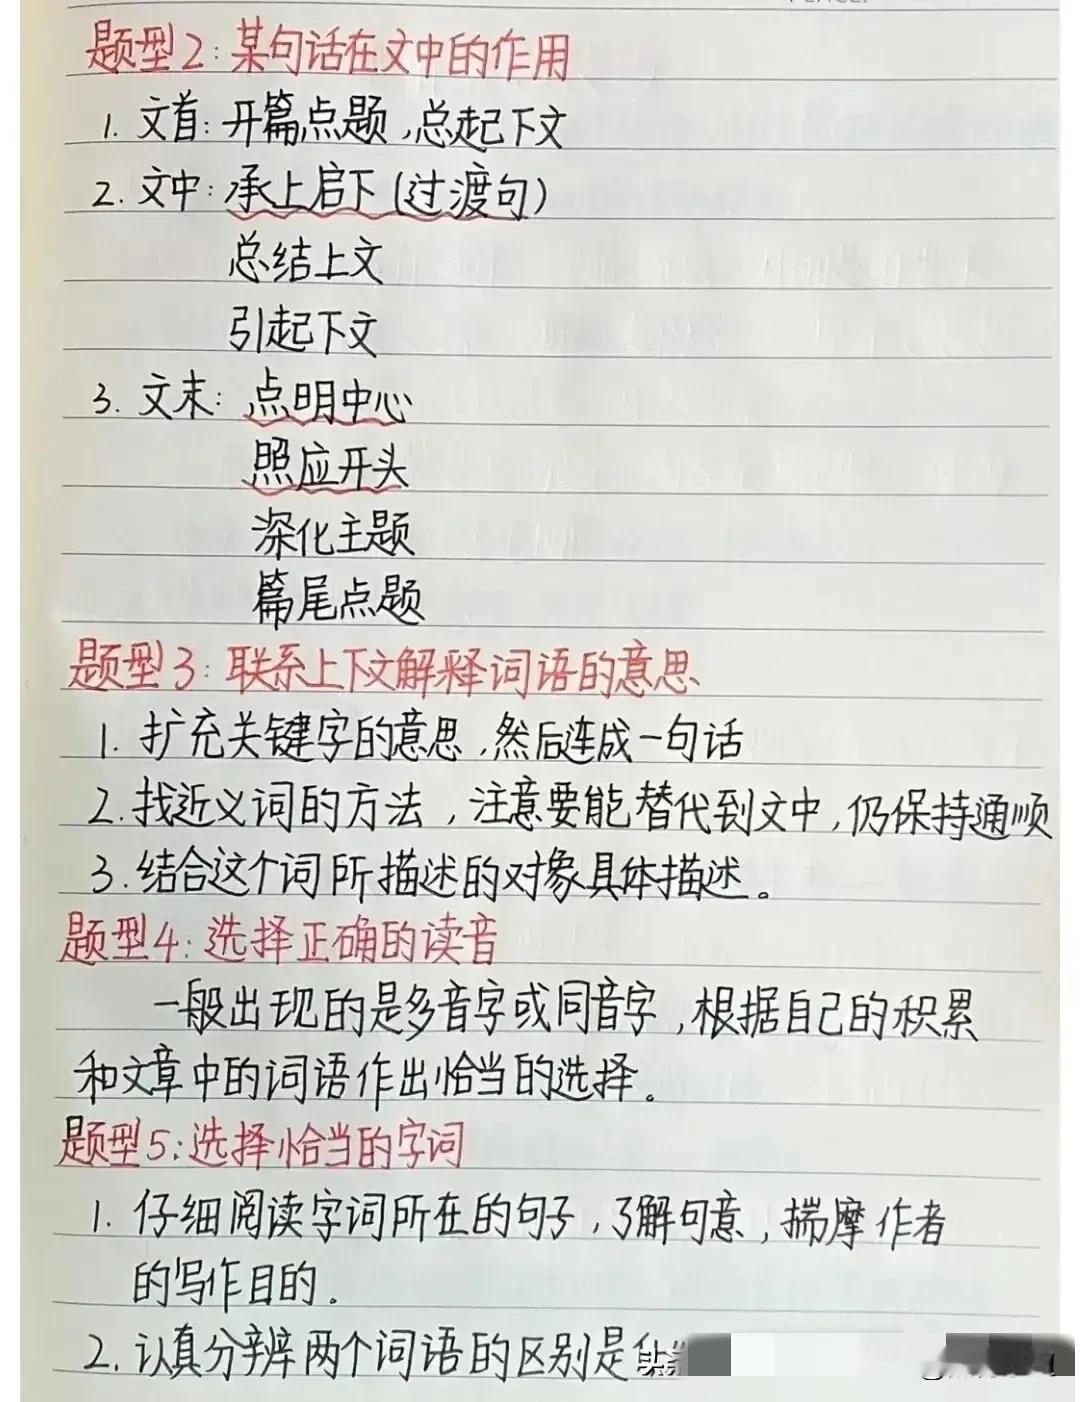 题型2:某句话在文中的作用
1. 文首:开篇点题,总起下文
2. 文中:承上启下(过渡句)
总结上文
引起下文
3. 文末:点明中心
照应开头
深化主题
篇尾点题
题型3:联系上下文解释词语的意思
1. 扩充关键字的意思,然后连成一句话
2. 找近义词的方法,注意要能替代到文中,仍保持通顺
3. 结合这个词所描述的对象具体描述。
题型4:选择正确的读音
一般出现的是多音字或同音字,根据自己的积累
和文章中的词语作出恰当的选择。
题型5:选择恰当的字词
1. 仔细阅读字词所在的句子,了解句意,揣摩作者
的写作目的.
2. 认真分辨两个词语的区别是